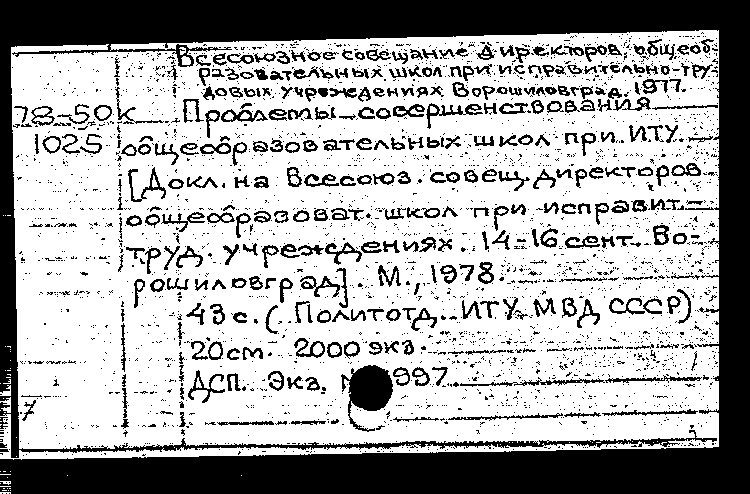 Всесоюзное совещание директоров общеоб-
разовательных школ при исправительно-тру-
довых учреждениях. Ворошиловград. 1977.
78-50к Проблемы совершенствования
1025 общеобразовательных школ при ИТУ.
[Докл. на Всесоюз. совещ. директоров
общеобразоват. школ при исправит.-
труд. учреждениях. 14-16 сент. Во-
рошиловград]. М., 1978.
43 с. (Политотд. ИТУ МВД СССР)
20 см. 2000 экз.
ДСП. Экз. 997
7